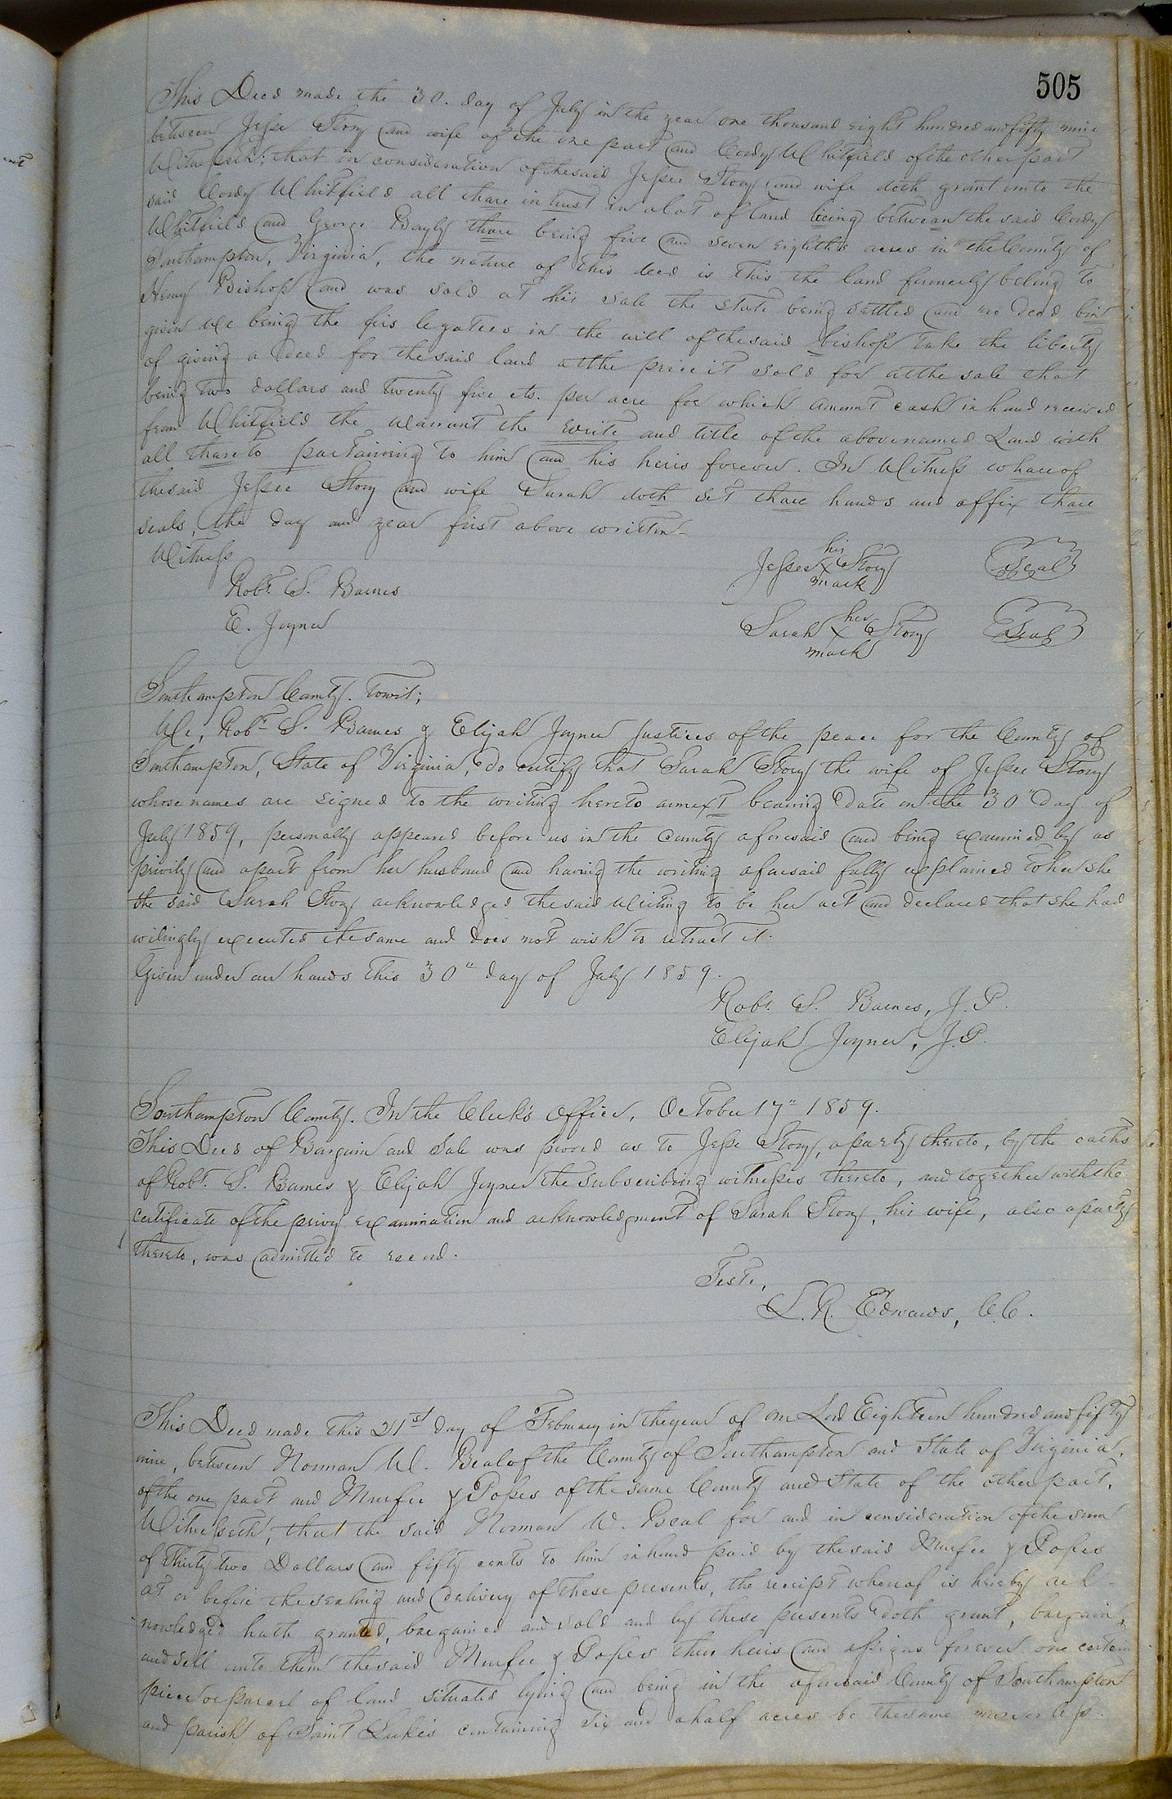 505
This Deed made the 30. day of July in the year one thousand eight hundred and fifty nine
between Jesse Story and wife of the one part and Cordy Whitfield of the other part
Witnesseth; that in consideration of the said Jesse Story and wife doth grant unto the
said Cordy Whitfield all thare intrust in a lot of land being between the said Cordy
Whitfield and George Bayly thare being five and seven eighths acres in the County of
Southampton, Virginia, the nature of this deed is this the land formerly belong to
Henry Bishop and was sold at his sale the state being settled and no deed bin
given We being the legatees in the will of the said bishop take the liberty
of giving a deed for the said land at the price it sold for at the sale that
being two dollars and twenty five cts. per acre for which amount cash in hand received
from Whitfield the warrant the write and title of the above named Land with
all thareto partaining to him and his heirs forever. In Witness whareof
the said Jesse Story and wife Sarah doth set thare hands and affix thare
seals, the day and year first above written.
Witness
Robt. S. Barnes
E. Joyner
Jesse his X mark Story Seal
Sarah her X mark Story Seal
Southampton County. towit;
We, Robt. S. Barnes & Elijah Joyner Justices of the peace for the County of
Southampton, State of Virginia, do certify that Sarah Story the wife of Jesse Story
whose names are signed to the writing hereto annext bearing date on the 30" day of
July 1859, personally appeared before us in the county aforesaid and being examined by us
privily and apart from her husband and having the writing aforesaid fully explained to her she
the said Sarah Story acknowledged the said writing to be her act and declared that she had
wilingly executed the same and does not wish to retract it.
Given under our hands this 30" day of July 1859.
Robt. S. Barnes, J.P.
Elijah Joyner, J.P.
Southampton County. In the Clerk's Office, October 17" 1859.
This Deed of Bargain and Sale was proved as to Jesse Story, a party thereto, by the oaths
of Robt. S. Barnes & Elijah Joyner the subscribing witnesses thereto, and together with the
certificate of the privy examination and acknowledgment of Sarah Story, his wife, also a party
thereto, was admitted to record.
Teste,
L. R. Edwards, C.C.
This Deed made this 21st day of February in the year of our Lord Eighteen hundred and fifty
nine, between Norman W. Beal of the County of Southampton and State of Virginia,
of the one part and Murfee & Popes of the same County and State of the other part,
Witnesseth, that the said Norman W. Beal for and in consideration of the sum
of Thirty two Dollars and fifty cents to him in hand paid by the said Murfee & Popes
at or before the sealing and delivery of these presents, the receipt whereof is hereby ack-
nowledged hath granted, bargained and sold and by these presents doth grant, bargain,
and sell unto them the said Murfee & Popes their heirs and assigns forever one certain
piece or parcel of land situated lying and being in the aforesaid County of Southampton
and parish of Saint Lukes containing six and a half acres be the same more or less.